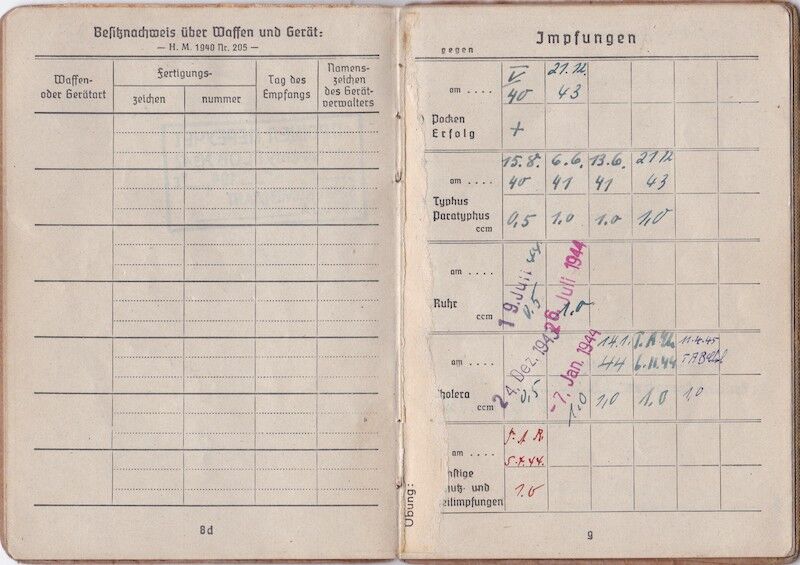 Besitznachweis über Waffen und Gerät:
— H. M. 1940 Nr. 205 —
Waffen-
oder Gerätart
Fertigungs-
zeichen
nummer
Tag des
Empfangs
Namens-
zeichen
des Gerät-
verwalters
8d
Übung:
Impfungen
gegen
am . . . .
V
40
21.12.
43
Pocken
Erfolg
+
am . . . .
15.8.
40
6.6.
41
13.6.
41
21.12
43
Typhus
Paratyphus
ccm
0,5
1.0
1.0
1,0
am . . . .
19. Juli
26. Juli 1944
Ruhr
ccm
0.5
1.0
am . . . .
24. Dez. 1943
-7. Jan. 1944
14.1.
44
6.11.44
11.4.45
holera
ccm
0,5
1.0
1,0
1.0
1,0
am . . . .
5.7.44.
nstige
utz- und
eilimpfungen
1.0
9